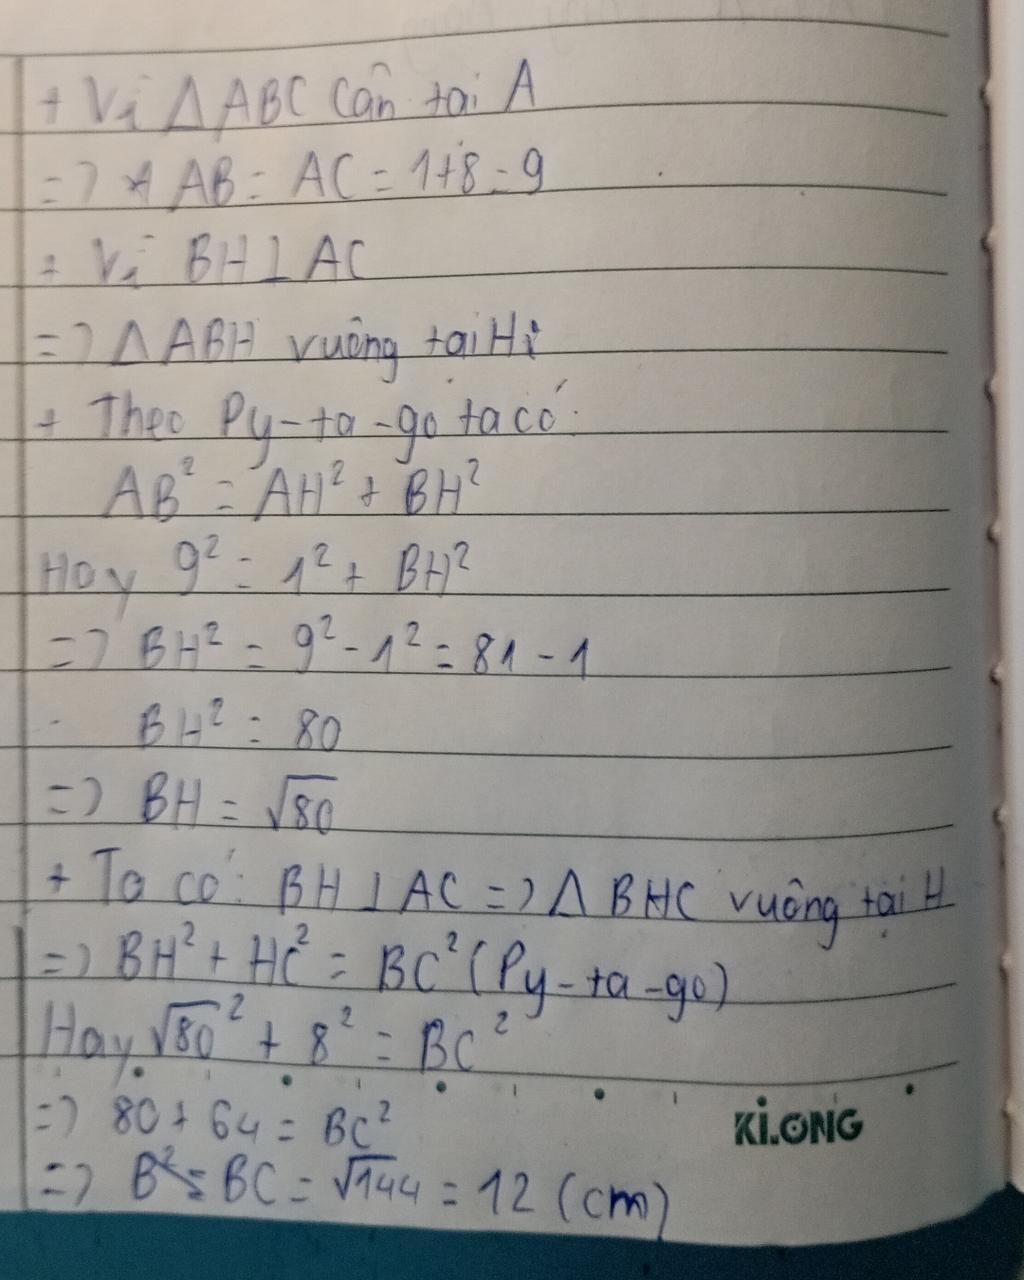 + Vì ΔABC cân tại A
=> AB = AC = 1+8 = 9
+ Vì BH⊥AC
=> ΔABH vuông tại H
+ Theo Py-ta-go ta có:
AB² = AH² + BH²
Hay 9² = 1² + BH²
=> BH² = 9² - 1² = 81 - 1
BH² = 80
=> BH = √80
+ Ta có: BH⊥AC => ΔBHC vuông tại H
=> BH² + HC² = BC² (Py-ta-go)
Hay √80² + 8² = BC²
=> 80 + 64 = BC²
KiLONG
=> BC = √144 = 12 (cm)